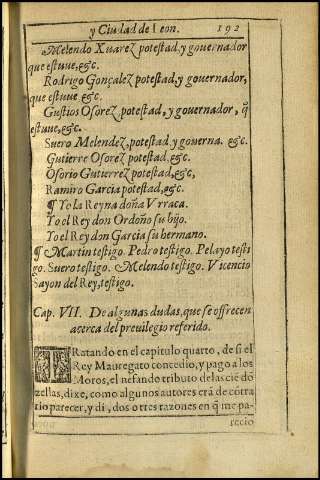 y Ciudad de Leon. 192
Melendo Xuarez potestad, y governador
que estuve, &c.
Rodrigo Gonçalez potestad, y governador,
que estuve &c.
Gustios Osorez potestad, y governador, q̃
estuve, &c.
Suero Melendez, potestad, y governa. &c.
Gutierre Osorez potestad, &c.
Osorio Gutierrez potestad, &c,
Ramiro Garcia potestad, &c.
¶ Yo la Reyna doña Vrraca.
Yo el Rey don Ordoño su hijo.
Yo el Rey don Garcia su hermano.
¶ Martin testigo. Pedro testigo. Pelayo testi
go. Suero testigo. Melendo testigo. Vicencio
Sayon del Rey, testigo.
Cap. VII. De algunas dudas, que se offrecen
acerca del previlegio referido.
TRatando en el capitulo quarto, de si el
Rey Mauregato concedio, y pago a los
Moros, el nefando tributo de las cie dõ
zellas, dixe, como algunos autores erã de cõtra
rio parecer, y di, dos o tres razones en q̃ me pa-
recio